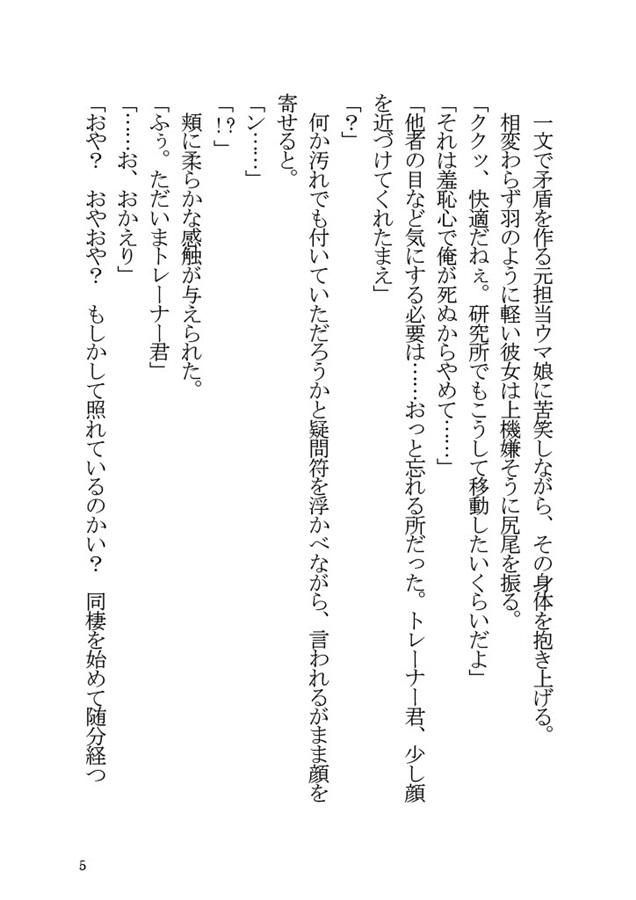 一文で矛盾を作る元担当ウマ娘に苦笑しながら、その身体を抱き上げる。
　相変わらず羽のように軽い彼女は上機嫌そうに尻尾を振る。
「ククッ、快適だねぇ。研究所でもこうして移動したいくらいだよ」
「それは羞恥心で俺が死ぬからやめて……」
「他者の目など気にする必要は……おっと忘れる所だった。トレーナー君、少し顔
を近づけてくれたまえ」
「？」
　何か汚れでも付いていただろうかと疑問符を浮かべながら、言われるがまま顔を
寄せると。
「ン……」
「!?」
　頬に柔らかな感触が与えられた。
「ふぅ。ただいまトレーナー君」
「……お、おかえり」
「おや？　おやおや？　もしかして照れているのかい？　同棲を始めて随分経つ
5